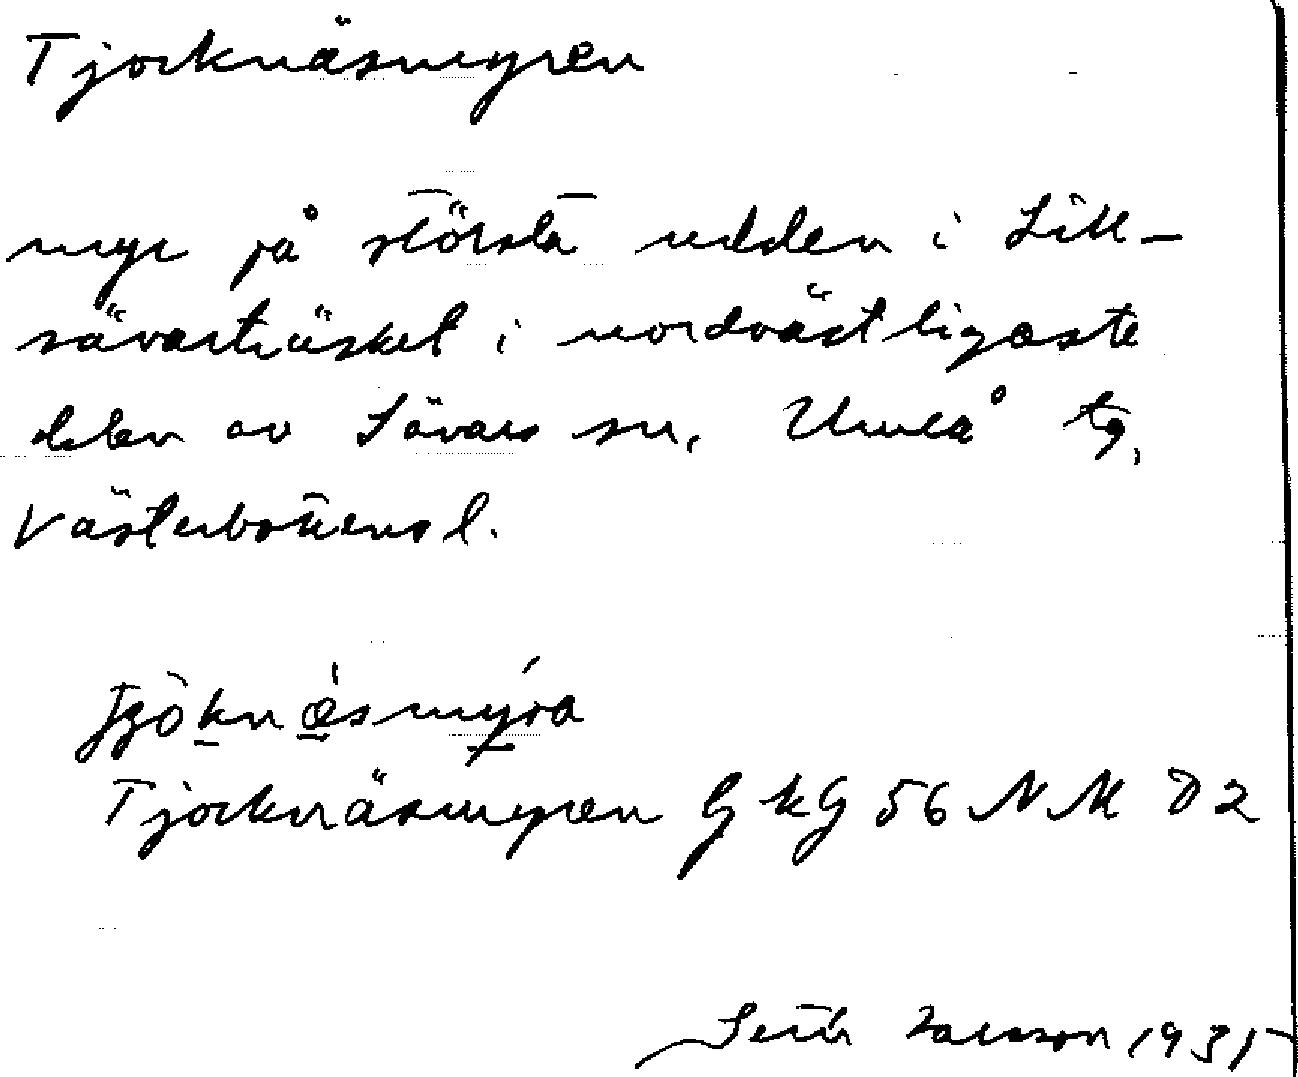 Tjocknäsmyren
myr på största udden i Lill-
sävarträsket i nordvästligaste
delen av Sävars sn, Umeå tg,
Västerbottens l.
Tjocknäsmyren GKG 56 NM D2
Seth Larsson 1931